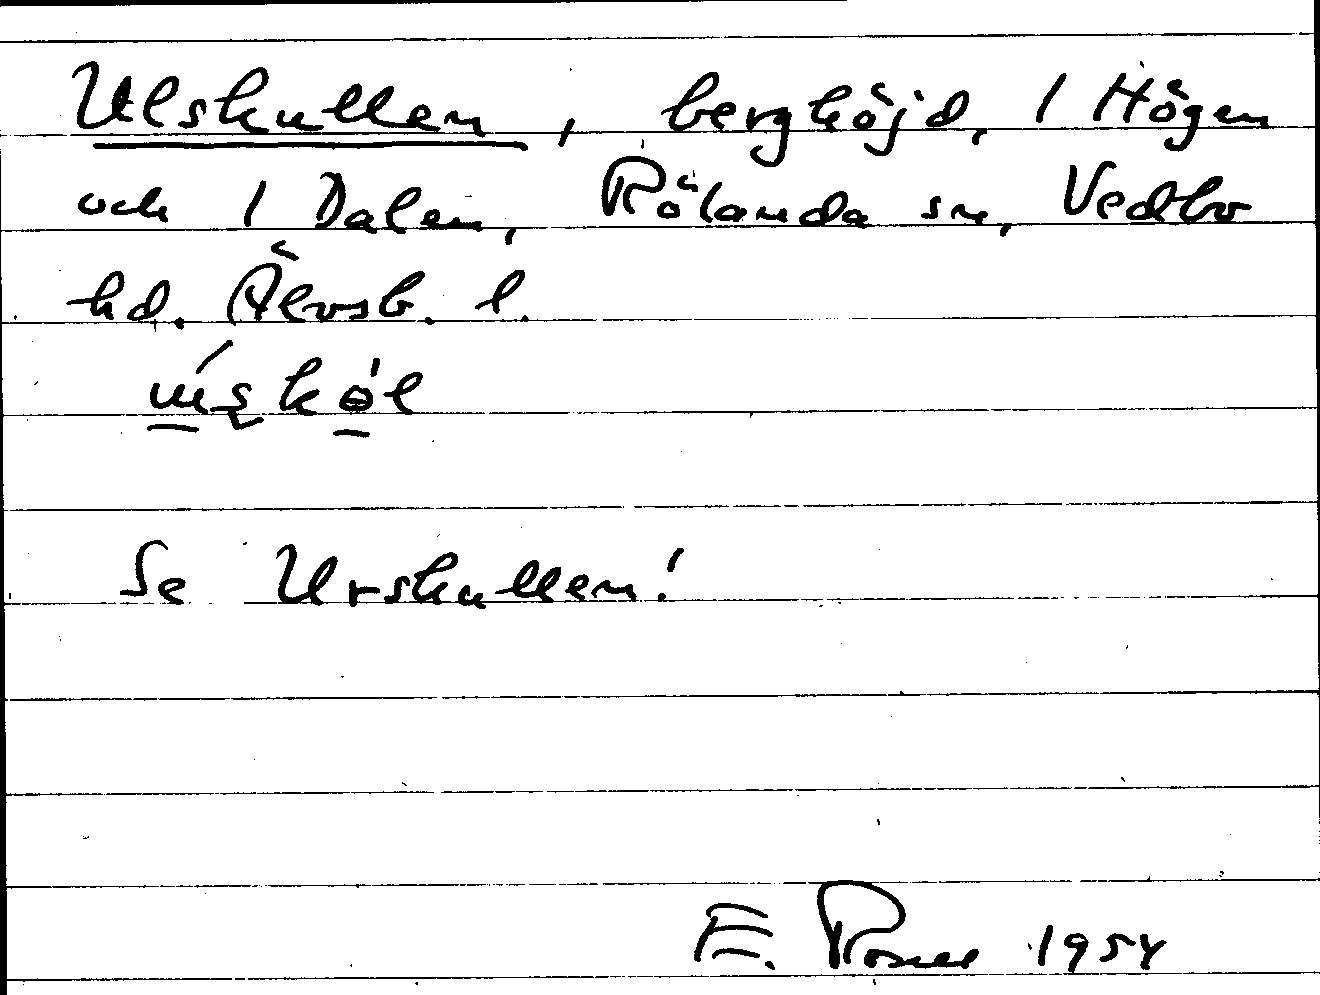 Ulskullen, berghöjd, 1 Högen
och 1 Dalen, Rölanda sn, Vedbo
hd. Älvsb. l.
Se Urskullen!
E. Rosell 1954